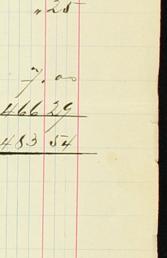 " 25
7.00
466 29
483 54